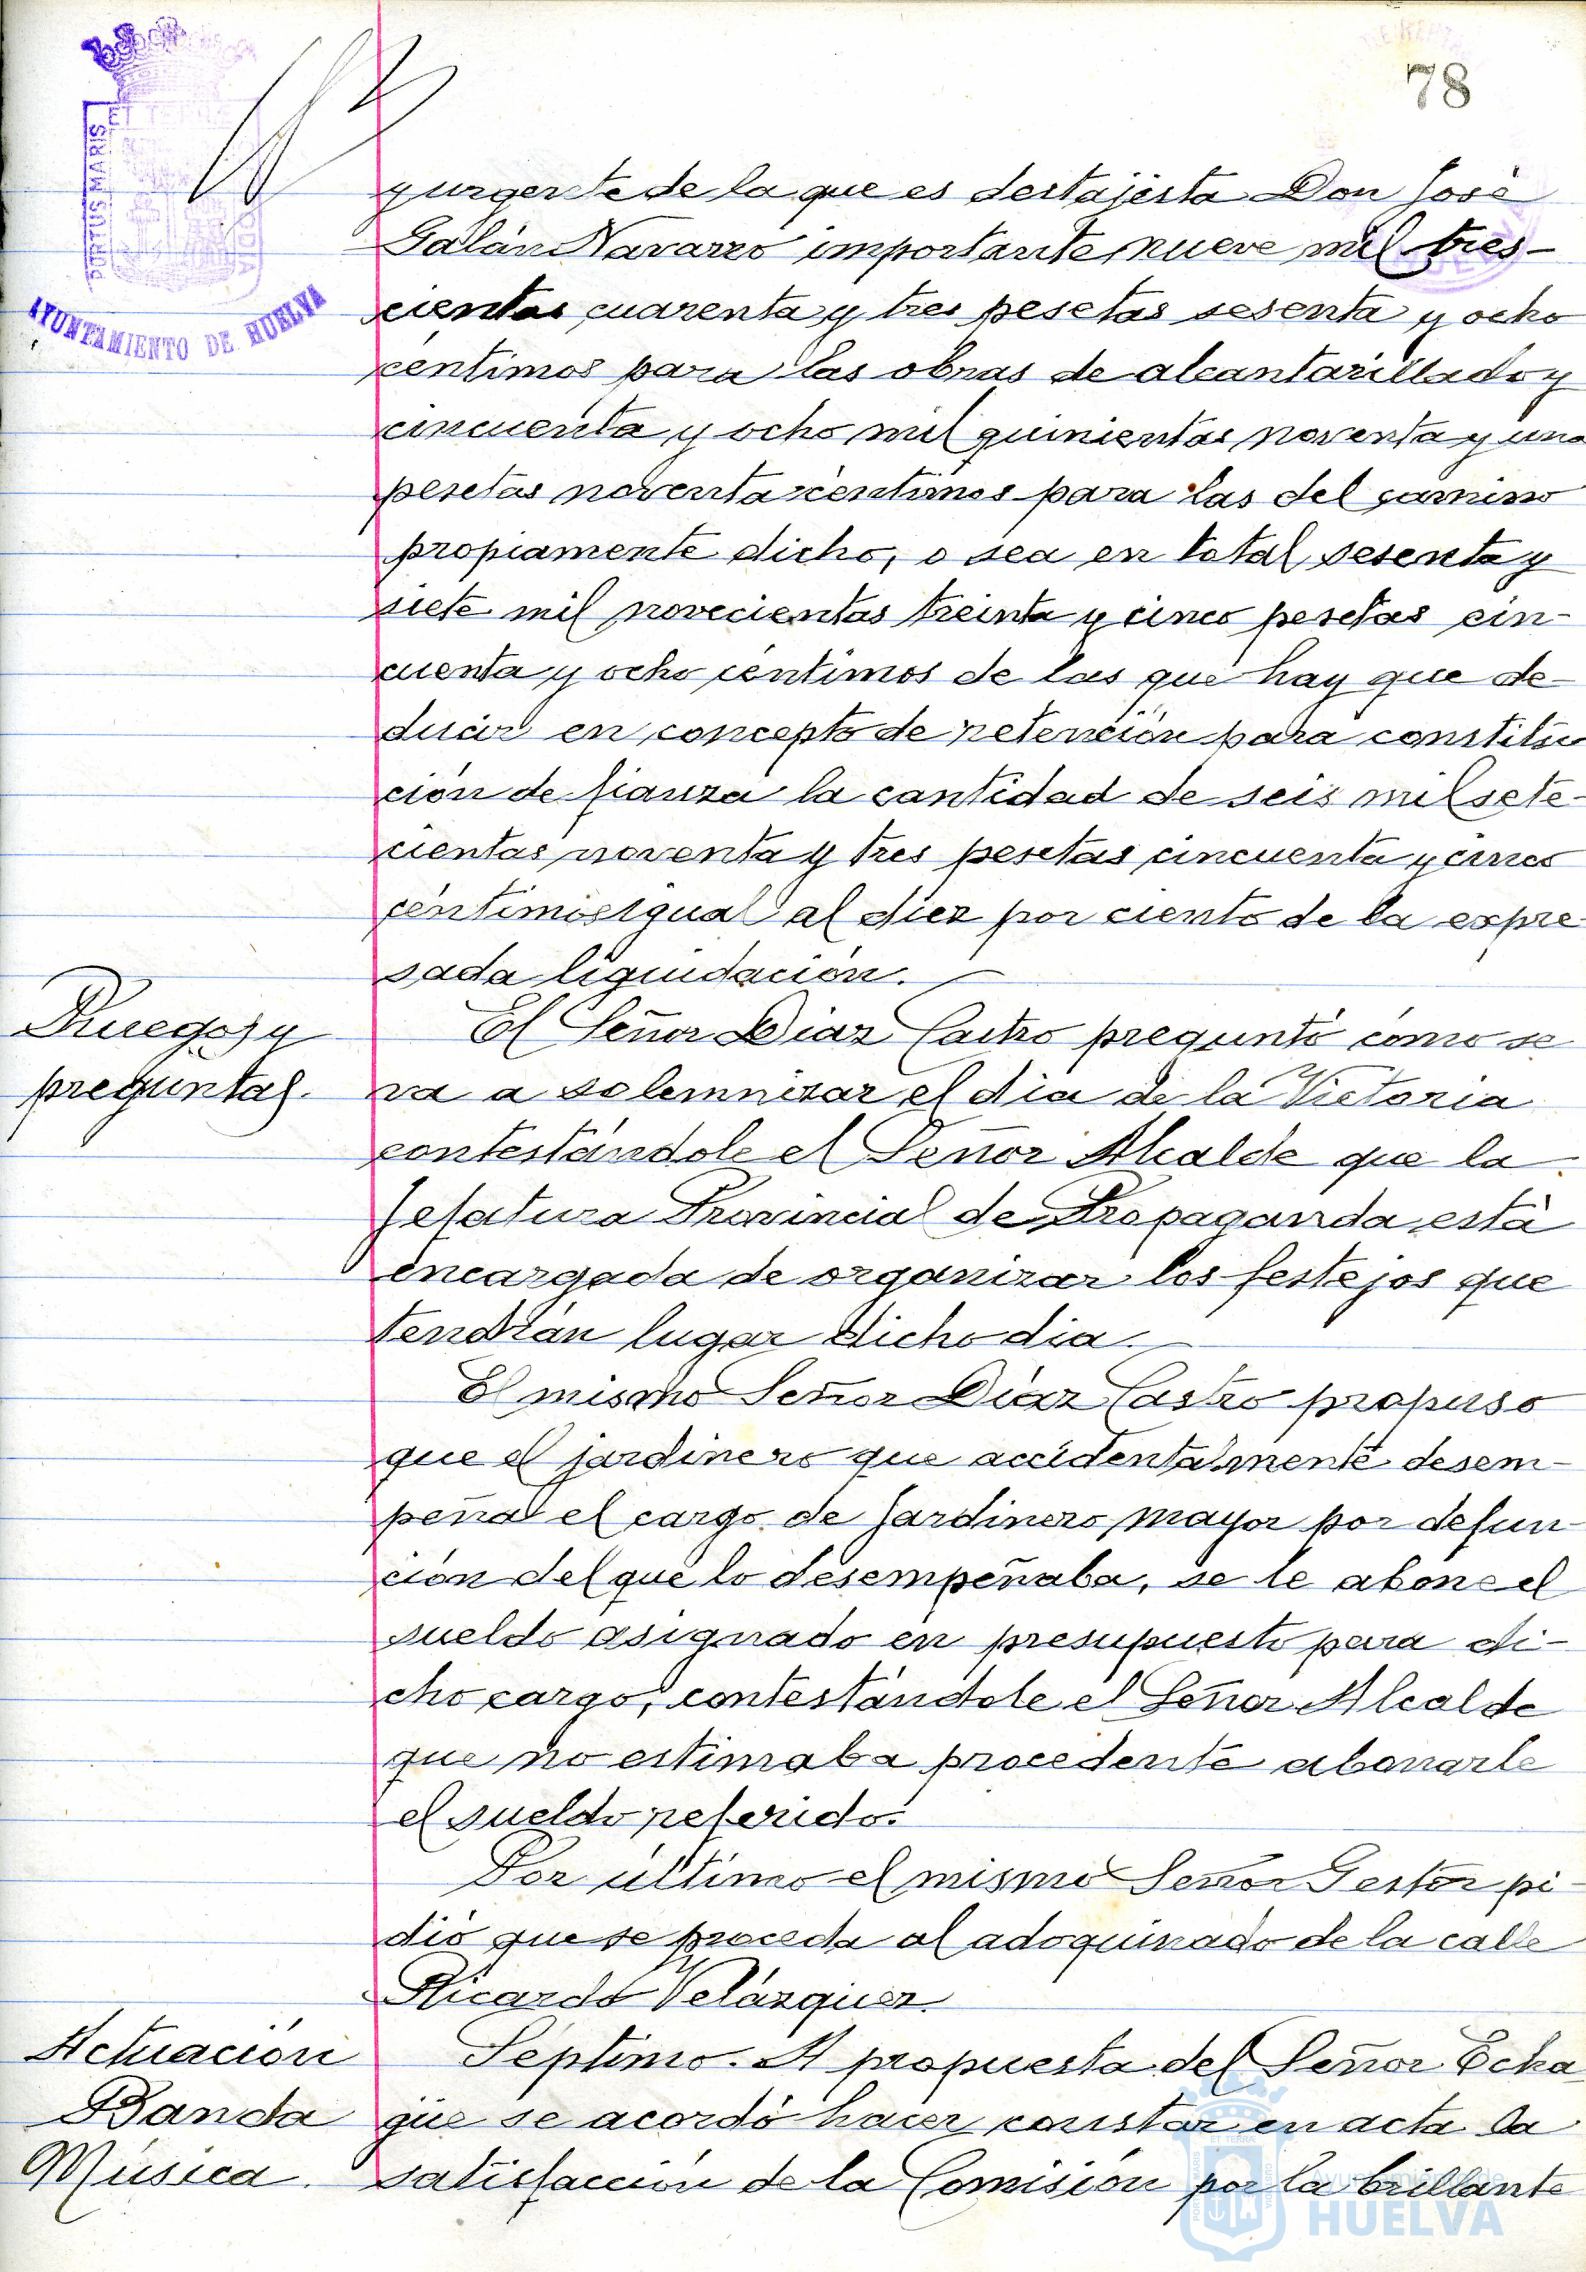 78
PORTUS MARIS
AYUNTAMIENTO DE HUELVA
y urgente de la que es destajista Don José
Galán Navarro importante nueve mil tres-
cientas cuarenta y tres pesetas sesenta y ocho
céntimos para las obras de alcantarillado y
cincuenta y ocho mil quinientas noventa y una
pesetas noventa céntimos para las del camino
propiamente dicho, o sea en total sesenta y
siete mil novecientas treinta y cinco pesetas cin-
cuenta y ocho céntimos de las que hay que de-
ducir en concepto de retención para constitu
ción de fianza la cantidad de seis mil sete-
cientas noventa y tres pesetas cincuenta y cinco
céntimos igual al diez por ciento de la expre-
sada liquidación.
Ruegos y
preguntas.
El Señor Díaz Castro preguntó como se
va a solemnizar el día de la Victoria
contestándole el Señor Alcalde que la
Jefatura Provincial de Propaganda está
encargada de organizar los festejos que
tendrán lugar dicho día.
El mismo Señor Díaz Castro propuso
que el jardinero que accidentalmente desem-
peña el cargo de Jardinero mayor por defun-
ción del que lo desempeñaba, se le abone el
sueldo asignado en presupuesto para di-
cho cargo, contestándole el Señor Alcalde
que no estimaba procedente abonarle
el sueldo referido.
Por último el mismo Señor Gestor pi-
dió que se proceda al adoquinado de la calle
Ricardo Velázquez.
Actuación
Banda
Música.
Séptimo. A propuesta del Señor Echa
güe se acordó hacer constar en acta la
satisfacción de la Comisión por la brillante
Ayuntamiento de
HUELVA